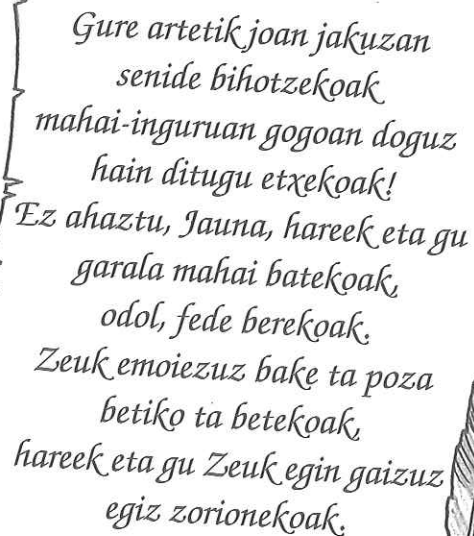 Gure artetik joan jakuzan
senide bihotzekoak
mahai-inguruan gogoan doguz
hain ditugu etxekoak!
Ez ahaztu, Jauna, hareek eta gu
garala mahai batekoak,
odol, fede berekoak.
Zeuk emoiezuz bake ta poza
betiko ta betekoak,
hareek eta gu Zeuk egin gaizuz
egiz zorionekoak.